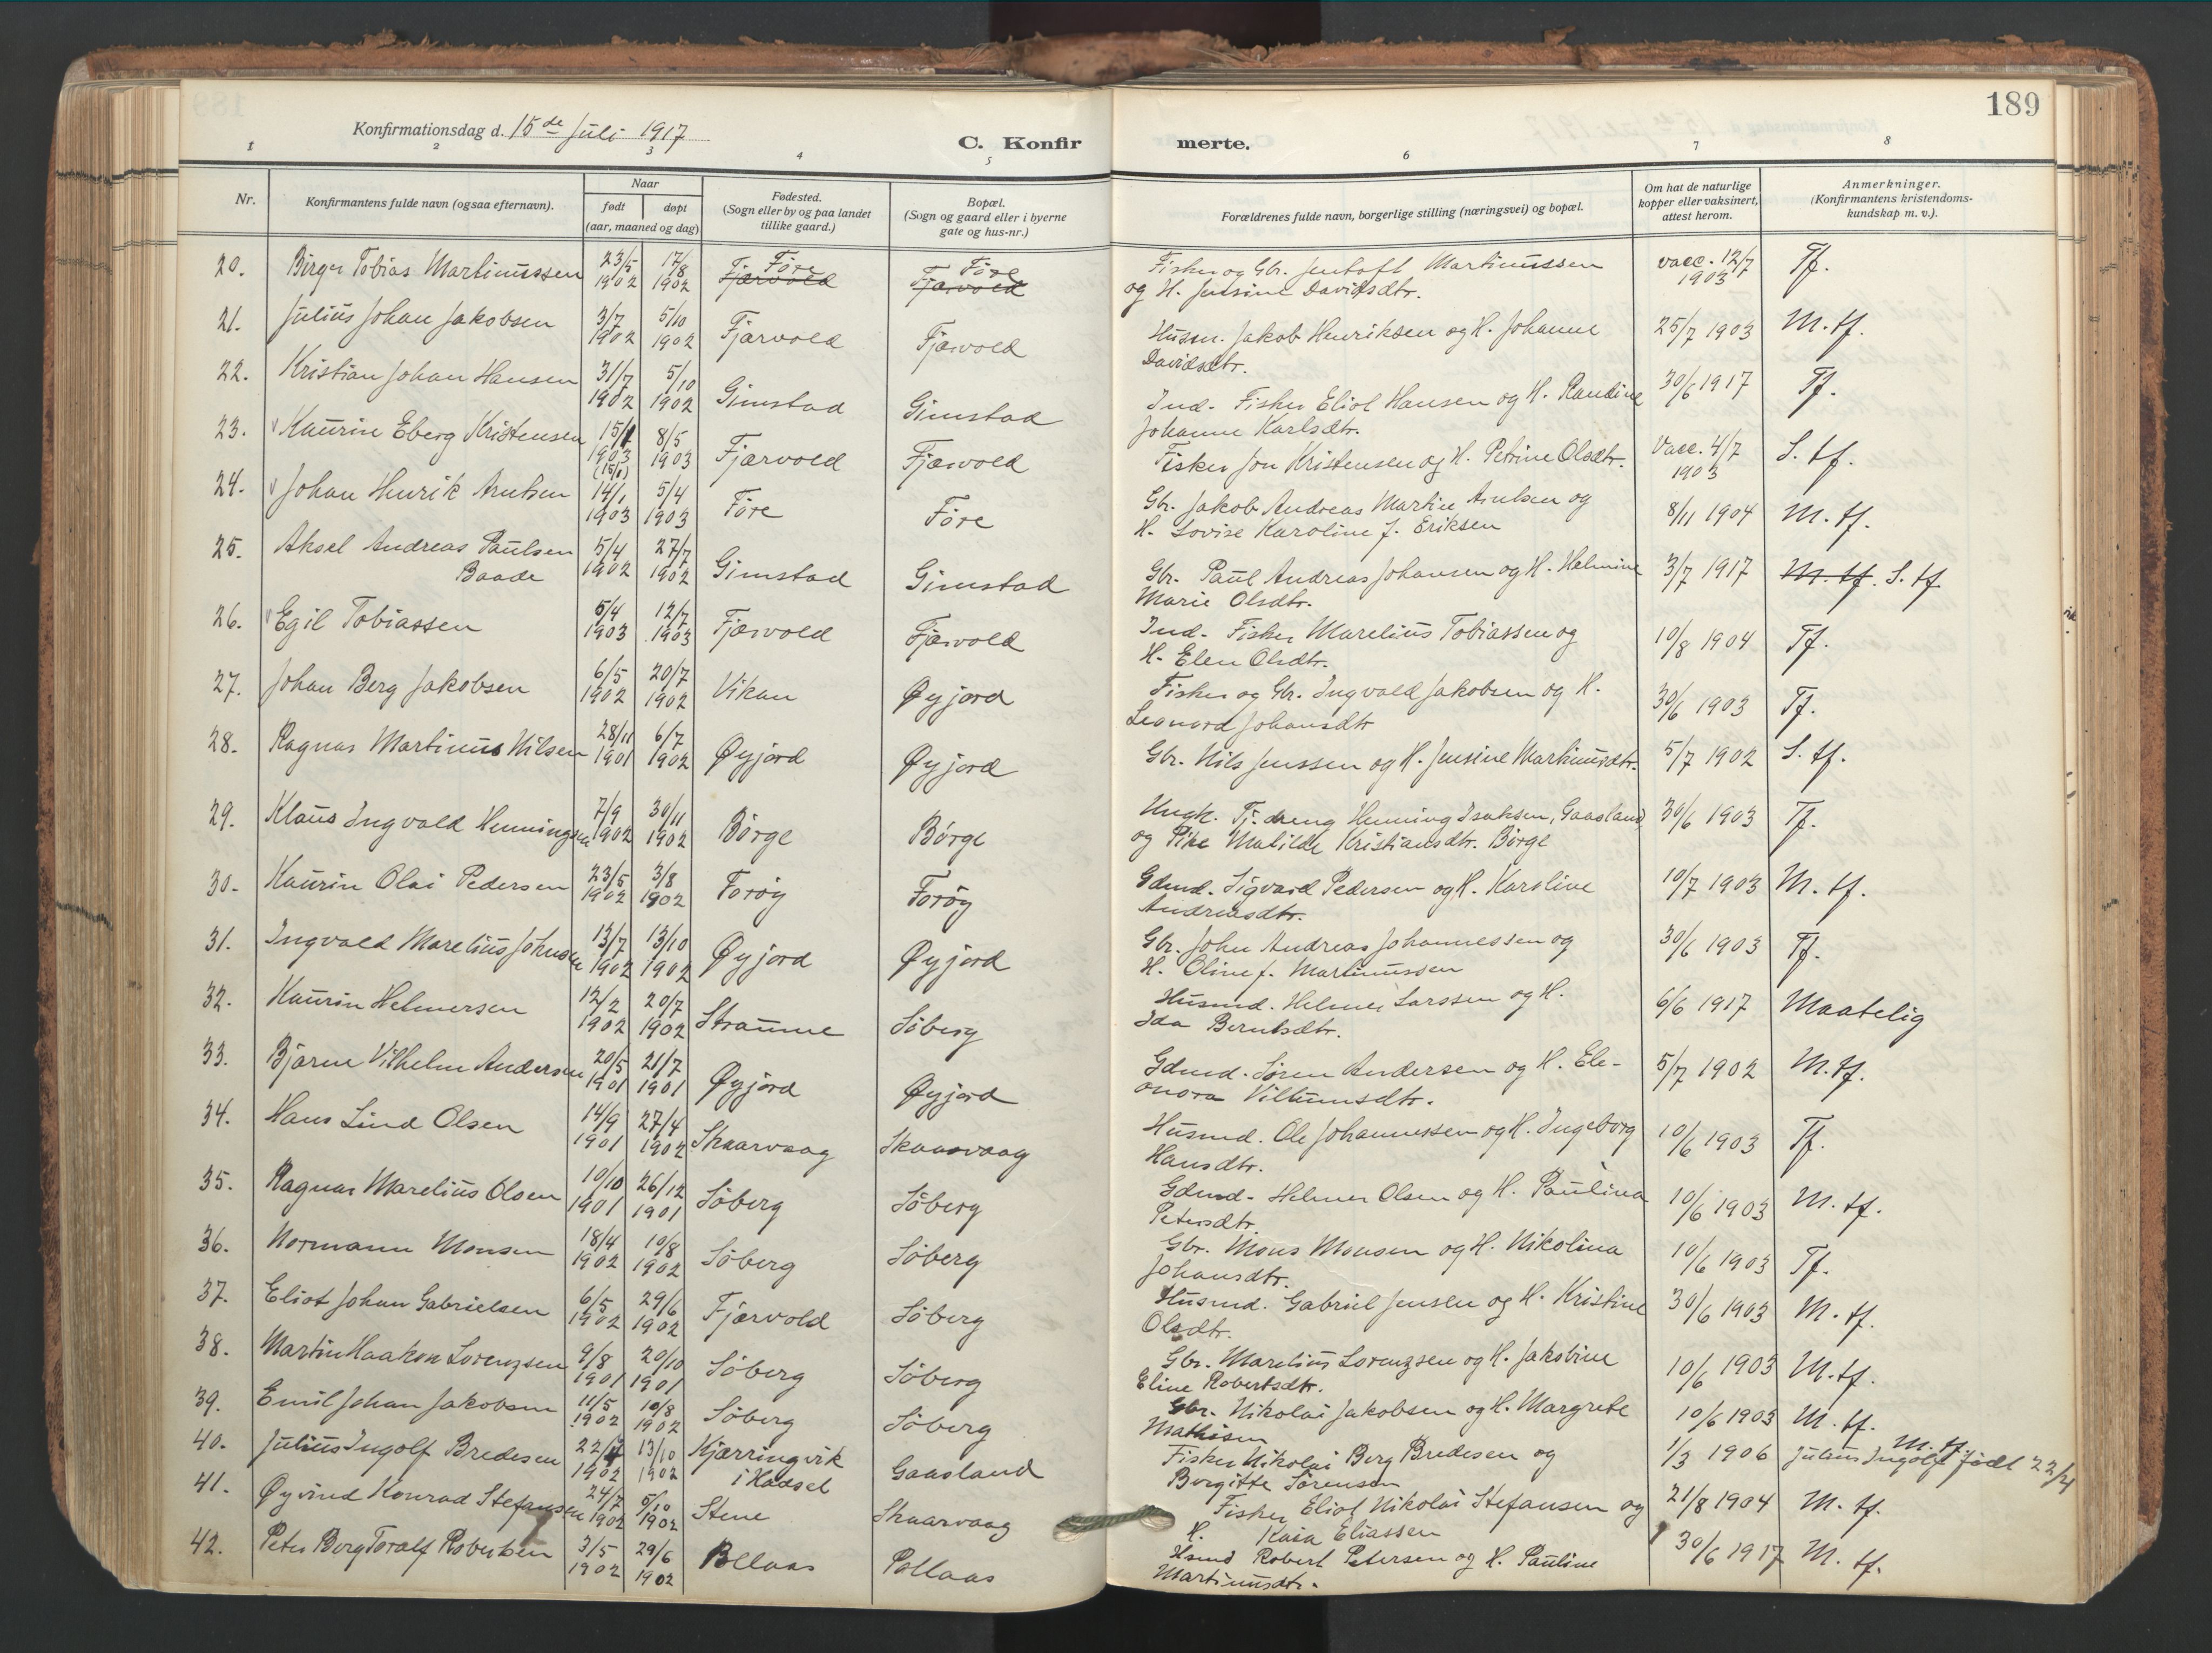 189
Konfirmationsdag d. 15de Juli 1917
C. Konfir merte.
1 2 3 4 5 6 7 8
Nr. Konfirmantens fulde navn (ogsaa efternavn). Naar født døpt (aar, maaned og dag) Fødested. (Sogn eller by og paa landet tillike gaard.) Bopæl. (Sogn og gaard eller i byerne gate og hus-nr.) Forældrenes fulde navn, borgerlige stilling (næringsvei) og bopæl. Om hat de naturlige kopper eller vaksinert, attest herom. Anmerkninger. (Konfirmantens kristendoms-kundskap m. v.).
20. Birger Tobias Martinussen 23/5 1902 17/8 1902 Fjærvold Føre Fjærvold Føre Fisker og Gbr. Jentoft Martinussen vacc. 12/7 1903 Tf.
og H. Jensine Davidsdtr.
21. Julius Johan Jakobsen 3/7 1902 5/10 1902 Fjærvold Fjærvold Husm. Jakob Henriksen og H. Johanne 25/7 1903 M. tf.
Davidsdtr.
22. Kristian Johan Hansen 31/7 1902 5/10 1902 Gimstad Gimstad Ind. Fisker Eliot Hansen og H. Randine 30/6 1917 Tf.
Johanne Karlsdtr.
23. Kaurin Eberg Kristensen 15/1 1903 (15/1) 8/5 1903 Fjærvold Fjærvold Fisker Jon Kristensen og H. Petrine Olsdtr. Vacc. 4/7 1903 S. tf.
24. Johan Henrik Arntsen 14/1 1903 5/4 1903 Føre Føre Gbr. Jakob Andreas Martin Arntsen og 8/11 1904 M. tf.
H. Lovise Karoline f. Eriksen
25. Aksel Andreas Paulsen 5/4 1902 27/7 1902 Gimstad Gimstad Gbr. Paul Andreas Johansen og H. Helmine 3/7 1917 M. tf. S. tf
Baade Marie Olsdtr.
26. Egil Tobiassen 5/4 1903 12/7 1903 Fjærvold Fjærvold Ind. Fisker Marelius Tobiassen og 10/8 1904 Tf.
H. Elen Olsdtr.
27. Johan Berg Jakobsen 6/5 1902 20/7 1902 Vikan Øyjord Fisker og Gbr. Ingvald Jakobsen og H. 30/6 1903 Tf.
Leonard Johansdtr
28. Ragnar Martinus Nilsen 28/11 1901 6/7 1902 Øyjord Øyjord Gbr. Nils Jenssen og H. Jensine Martinusdtr. 5/7 1902 S. tf.
29. Klaus Ingvald Henningsen 7/9 1902 30/11 1902 Børge Børge Ungk. Tj. dreng Henning Isaksen, Gaasland 30/6 1903 Tf.
og Pike Matilde Kristiansdtr. Børge
30. Kaurin Olai Pedersen 23/5 1902 3/8 1902 Forøy Forøy Gdmd. Sigvard Pedersen og H. Karoline 10/7 1903 M. tf.
Andreasdtr.
31. Ingvald Marelius Johnsen 13/7 1902 13/10 1902 Øyjord Øyjord Gbr. John Andreas Johannessen og 30/6 1903 Tf.
H. Oline f. Martinussen
32. Kaurin Helmersen 12/2 1902 20/7 1902 Straume Søberg Husmd. Helmer Larssen og H. 6/6 1917 Maatelig
Ida Berntsdtr.
33. Bjarne Vilhelm Andersen 20/5 1901 21/7 1901 Øyjord Øyjord Gdmd. Søren Andersen og H. Ele- 5/7 1902 M. tf.
onora Villumsdtr.
34. Hans Lind Olsen 14/9 1901 27/4 1902 Skaarvaag Skaarvaag Husmd. Ole Johannessen og H. Ingeborg 10/6 1903 Tf.
Hansdtr.
35. Ragnar Marelius Olsen 10/10 1901 26/12 1901 Søberg Søberg Gdmd. Helmer Olsen og H. Paulina 10/6 1903 M. tf.
Petersdtr.
36. Normann Monsen 18/4 1902 10/8 1902 Søberg Søberg Gbr. Mons Monsen og H. Nikolina 10/6 1903 Tf.
Johansdtr.
37. Eliot Johan Gabrielsen 6/5 1902 29/6 1902 Fjærvold Søberg Husmd. Gabriel Jensen og H. Kristine 30/6 1903 M. tf.
Olsdtr.
38. Martin Haakon Lorenzsen 9/8 1901 20/10 1901 Søberg Søberg Gbr. Marelius Lorenzsen og H. Jakobine 10/6 1903 M. tf.
Eline Robertsdtr.
39. Emil Johan Jakobsen 11/5 1902 10/8 1902 Søberg Søberg Gbr. Nikolai Jakobsen og H. Margrete 10/6 1903 M. tf.
Mathisen
40. Julius Ingolf Bredesen 22/4 1902 13/10 1902 Kjærringvik i Hadsel Gaasland Fisker Nikolai Berg Bredesen og 1/3 1906 M. tf. Julius Ingolf født 22/4
Bergitte Sørensen
41. Øyvind Konrad Stefansen 24/7 1902 5/10 1902 Stene Skaarvaag Fisker Eliot Nikolai Stefansen og 21/8 1904 M. tf.
H. Kaia Eliassen
42. Peter Berg Toralf Robertsen 3/5 1902 29/6 1902 Pollaas Pollaas Hsmd Robert Petersen og H. Pauline 30/6 1917 M. tf.
Martinusdtr.